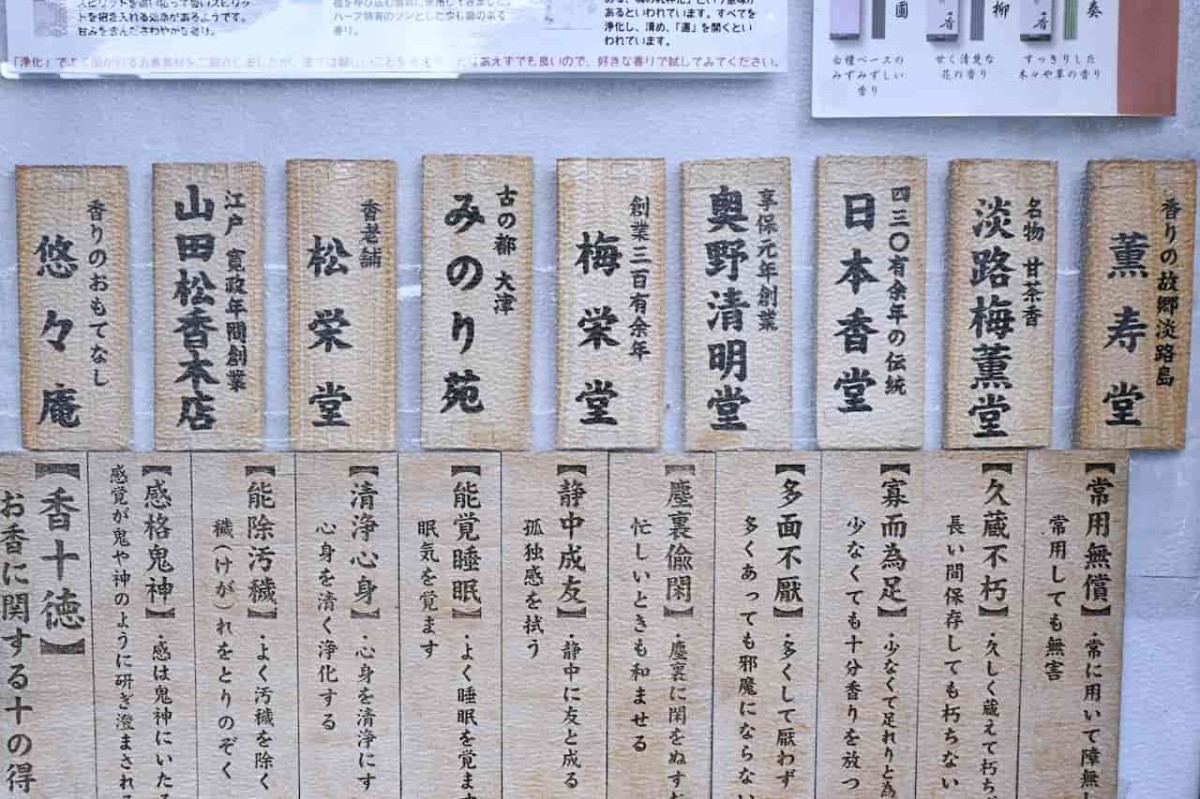 スピリットを追い払って善いスピリッ
トを招き入れる効果があるようです。
甘みを含んださわやかな香り。
ハーブ特有のツンとした
香り。
あるといわれています。すべてを
浄化し、清め、「運」を開くとい
われています。
あえずでも良いので、好きな香りで試してみてください。
白檀ベースの
みずみずしい
香り
柳
甘く清楚な
花の香り
奏
すっきりした
木々や草の香り
香りの故郷淡路島
薫寿堂
名物 甘茶香
淡路梅薫堂
四三〇有余年の伝統
日本香堂
享保元年創業
奥野清明堂
創業三百有余年
梅栄堂
古の都 大津
みのり苑
香老舗
松栄堂
江戸 寛政年間創業
山田松香木店
香りのおもてなし
悠々庵
【香十徳】
お香に関する十の得
【感格鬼神】・感は鬼神にいたる
感覚が鬼や神のように研ぎ澄まされる
【能除汚穢】・よく汚穢を除く
穢(けが)れをとりのぞく
【清浄心身】・心身を清浄にす
心身を清く浄化する
【能覚睡眠】・よく睡眠を覚ます
眠気を覚ます
【静中成友】・静中に友と成る
孤独感を拭う
【塵裏偸閑】・塵裏に閑をぬす
忙しいときも和ませる
【多面不厭】・多くして厭わず
多くあっても邪魔にならない
【寡而為足】・少なくて足れりと為
少なくても十分香りを放つ
【久蔵不朽】・久しく蔵えて朽ち
長い間保存しても朽ちない
【常用無償】・常に用いて障無し
常用しても無害